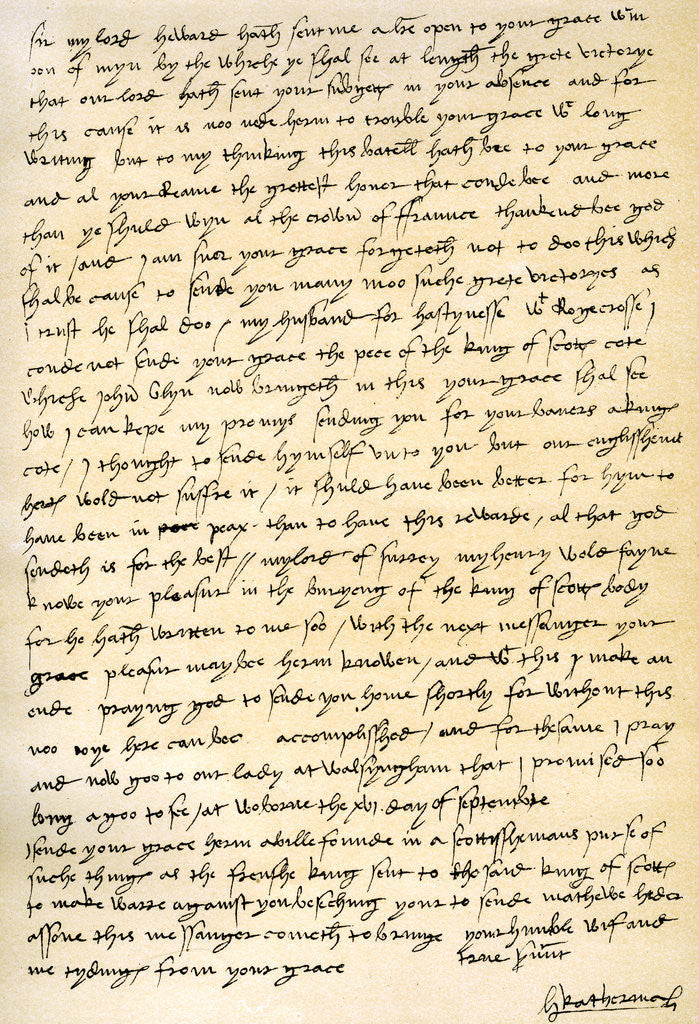 Sir my lord heward hath sent me a lre open to your grace wtin
oon of myn by the whiche ye shal see at length the grete victorye
that our lord hath sent your subgetts in your absence and for
this cause it is noo nede herin to trouble your grace wt long
writing but to my thinking this bataill hath bee to your grace
and al your Reame the grettest honor that coude bee and more
than ye shuld wyn al the crown of ffraunce thankend bee god
of it / and I am suer your grace forgeteth not to doo this which
shal be cause to sende you many moo suche grete victoryes as
I trust he shal doo / my husband for hastynesse wt Rogecrosse I
coude not sende your grace the pece of the king of scotts cote
whiche John Glyn now bringeth in this your grace shal see
how I can kepe my promys sending you for your baners a kings
cote / I thought to sende hymself vnto you but our englisshemens
herts wold not suffre it / it shuld have been better for hym to
have been in peax than to have this rewarde / al that god
sendeth is for the best // mylord of surrey my henry wold fayne
knowe your pleasur in the buryeng of the king of scotts body
for he hath written to me soo / with the next messanger your
grace pleasur may bee herin knowen / and wt this I make an
ende praying god to sende you home shortly for without this
noo joye here can bee accomplisshed / and for the same I pray
and now goo to our lady at walsyngham that I promised soo
long agoo to see / at woborne the xvi day of septembre
I sende your grace herin a bille founde in a scottisshemans purse of
suche things as the frenshe king sent to the said king of scotts
to make warre against you beseching your to sende mathewe heder
assone this messanger cometh to bringe
me tydings from your grace
your humble wif and
true svnt
Katherina